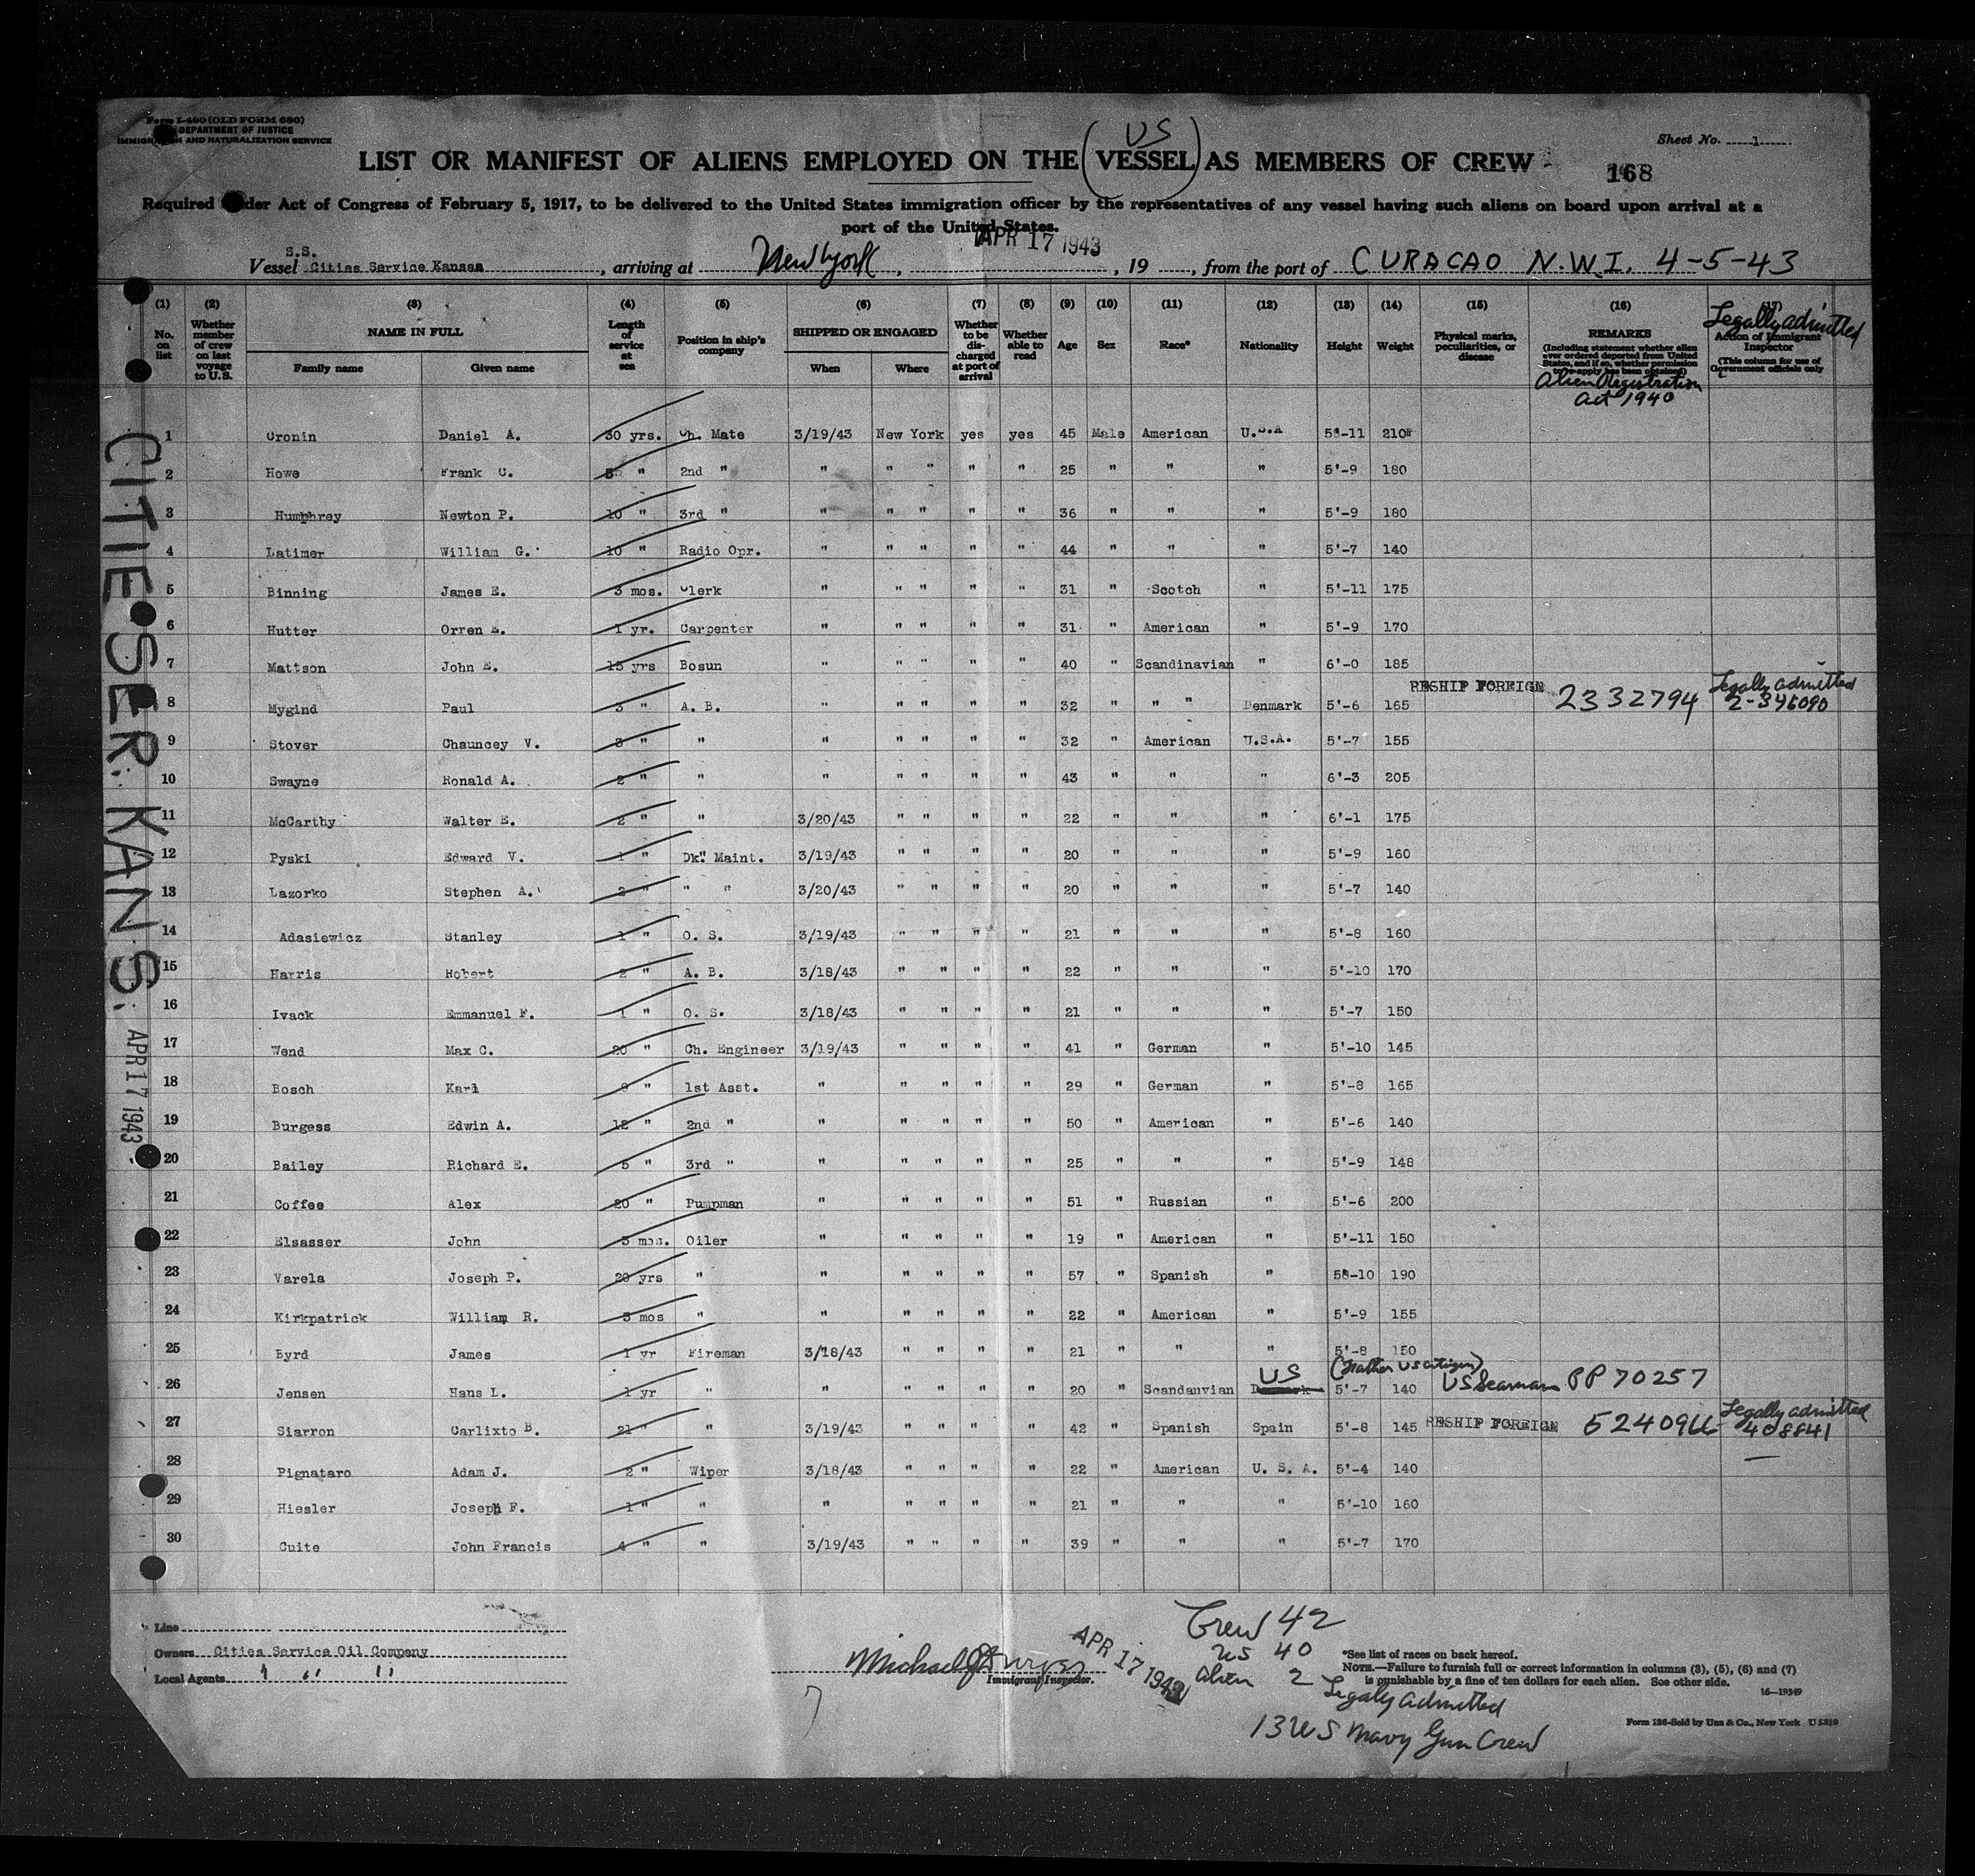 Form I-480 (OLD FORM 680)
DEPARTMENT OF JUSTICE
IMMIGRATION AND NATURALIZATION SERVICE
Sheet No. 1
US
LIST OR MANIFEST OF ALIENS EMPLOYED ON THE (VESSEL) AS MEMBERS OF CREW
168
Required under Act of Congress of February 5, 1917, to be delivered to the United States immigration officer by the representatives of any vessel having such aliens on board upon arrival at a
port of the United States.
APR 17 1943
S.S.
Vessel Cities Service Kansas, arriving at New York, , 19 , from the port of CURACAO N.W.I. 4-5-43
(1) (2) (3) (4) (5) (6) (7) (8) (9) (10) (11) (12) (13) (14) (15) (16) (17)
No. on list
Whether member of crew on last voyage to U.S.
NAME IN FULL
Family name Given name
Length of service at sea
Position in ship's company
SHIPPED OR ENGAGED
When Where
Whether to be discharged at port of arrival
Whether able to read
Age Sex Race* Nationality Height Weight
Physical marks, peculiarities, or disease
REMARKS
(Including statement whether alien ever ordered deported from United States, and if so, whether permission to re-apply has been obtained)
Alien Registration
Act 1940
Legally admitted
Action of Immigrant Inspector
(This column for use of Government officials only
1 Cronin Daniel A. 30 yrs. Ch. Mate 3/19/43 New York yes yes 45 Male American U.S.A 58-11 210#
2 Howe Frank C. " 2nd " " " " " " 25 " " " 5'-9 180
3 Humphrey Newton P. 10 " 3rd " " " " " " 36 " " " 5'-9 180
4 Latimer William G. 10 " Radio Opr. " " " " " 44 " " " 5'-7 140
5 Binning James E. 3 mos. Clerk " " " " " 31 " Scotch " 5'-11 175
6 Hutter Orren E. 1 yr. Carpenter " " " " " 31 " American " 5'-9 170
7 Mattson John E. 15 yrs Bosun " " " " " 40 " Scandinavian " 6'-0 185
8 Mygind Paul 3 " A. B. " " " " " 32 " " " Denmark 5'-6 165 RESHIP FOREIGN 2332794 Legally admitted 2-346090
9 Stover Chauncey V. 3 " " " " " " " 32 " American U.S.A. 5'-7 155
10 Swayne Ronald A. 2 " " " " " " " 43 " " " 6'-3 205
11 McCarthy Walter E. 2 " " 3/20/43 " " " " 22 " " " 6'-1 175
12 Pyski Edward V. 1 " Dk. Maint. 3/19/43 " " " " 20 " " " 5'-9 160
13 Lazorko Stephen A. 2 " " " 3/20/43 " " " " 20 " " " 5'-7 140
14 Adasiewicz Stanley 1 " O. S. 3/19/43 " " " " 21 " " " 5'-8 160
15 Harris Robert 2 " A. B. 3/18/43 " " " " 22 " " " 5'-10 170
16 Ivack Emmanuel F. 1 " O. S. 3/18/43 " " " " 21 " " " 5'-7 150
17 Wend Max C. 20 " Ch. Engineer 3/19/43 " " " " 41 " German " 5'-10 145
18 Bosch Karl 9 " 1st Asst. " " " " " 29 " German " 5'-8 165
19 Burgess Edwin A. 12 " 2nd " " " " " " 50 " American " 5'-6 140
20 Bailey Richard E. 5 " 3rd " " " " " " 25 " " " 5'-9 148
21 Coffee Alex 20 " Pumpman " " " " " 51 " Russian " 5'-6 200
22 Elsasser John 3 mos. Oiler " " " " " 19 " American " 5'-11 150
23 Varela Joseph P. 20 yrs " " " " " " 57 " Spanish " 58-10 190
24 Kirkpatrick William R. 3 mos " " " " " " 22 " American " 5'-9 155
25 Byrd James 1 yr Fireman 3/18/43 " " " " 21 " " " 5'-8 150
26 Jensen Hans L. 1 yr " " " " " " 20 " Scandanvian Denmark US 5'-7 140 (Father US citizen) US Seaman PP 70257
27 Siarron Carlixto B. 21 " " 3/19/43 " " " " 42 " Spanish Spain 5'-8 145 RESHIP FOREIGN 5240966 Legally admitted 408841
28 Pignataro Adam J. 2 " Wiper 3/18/43 " " " " 22 " American U. S. A. 5'-4 140
29 Hiesler Joseph F. 1 " " " " " " " 21 " " " 5'-10 160
30 Cuite John Francis 4 " " 3/19/43 " " " " 39 " " " 5'-7 170
CITIE SER. KANS.
APR 17 1943
Line
Owners Cities Service Oil Company
Local Agents " " "
Michael
Immigrant Inspector.
APR 17 1943
Crew 42
US 40
Alien 2
Legally admitted
13 US Navy Gun Crew
*See list of races on back hereof.
NOTE.—Failure to furnish full or correct information in columns (3), (5), (6) and (7)
is punishable by a fine of ten dollars for each alien. See other side.
16-19349
Form 186-Sold by Unz & Co., New York U 5819